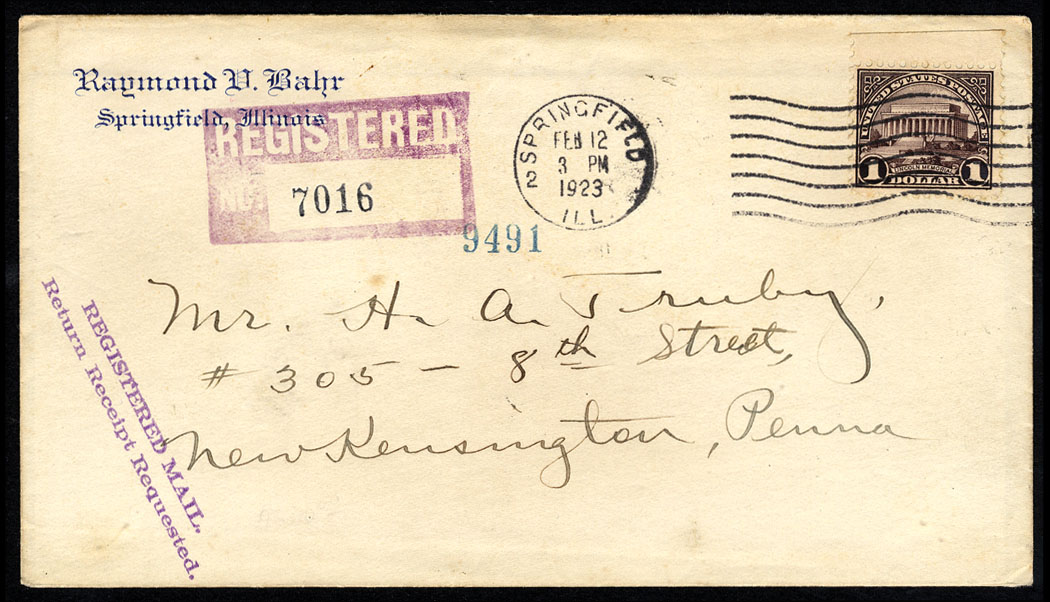 Raymond V. Bahr
Springfield, Illinois
REGISTERED
NO.
7016
9491
2 SPRINGFIELD
FEB 12
3 PM
1923
ILL.
UNITED STATES POSTAGE
LINCOLN MEMORIAL
1 DOLLAR 1
Mr. H. A. Truby,
# 305 - 8th Street,
New Kensington, Penna
REGISTERED MAIL.
Return Receipt Requested.